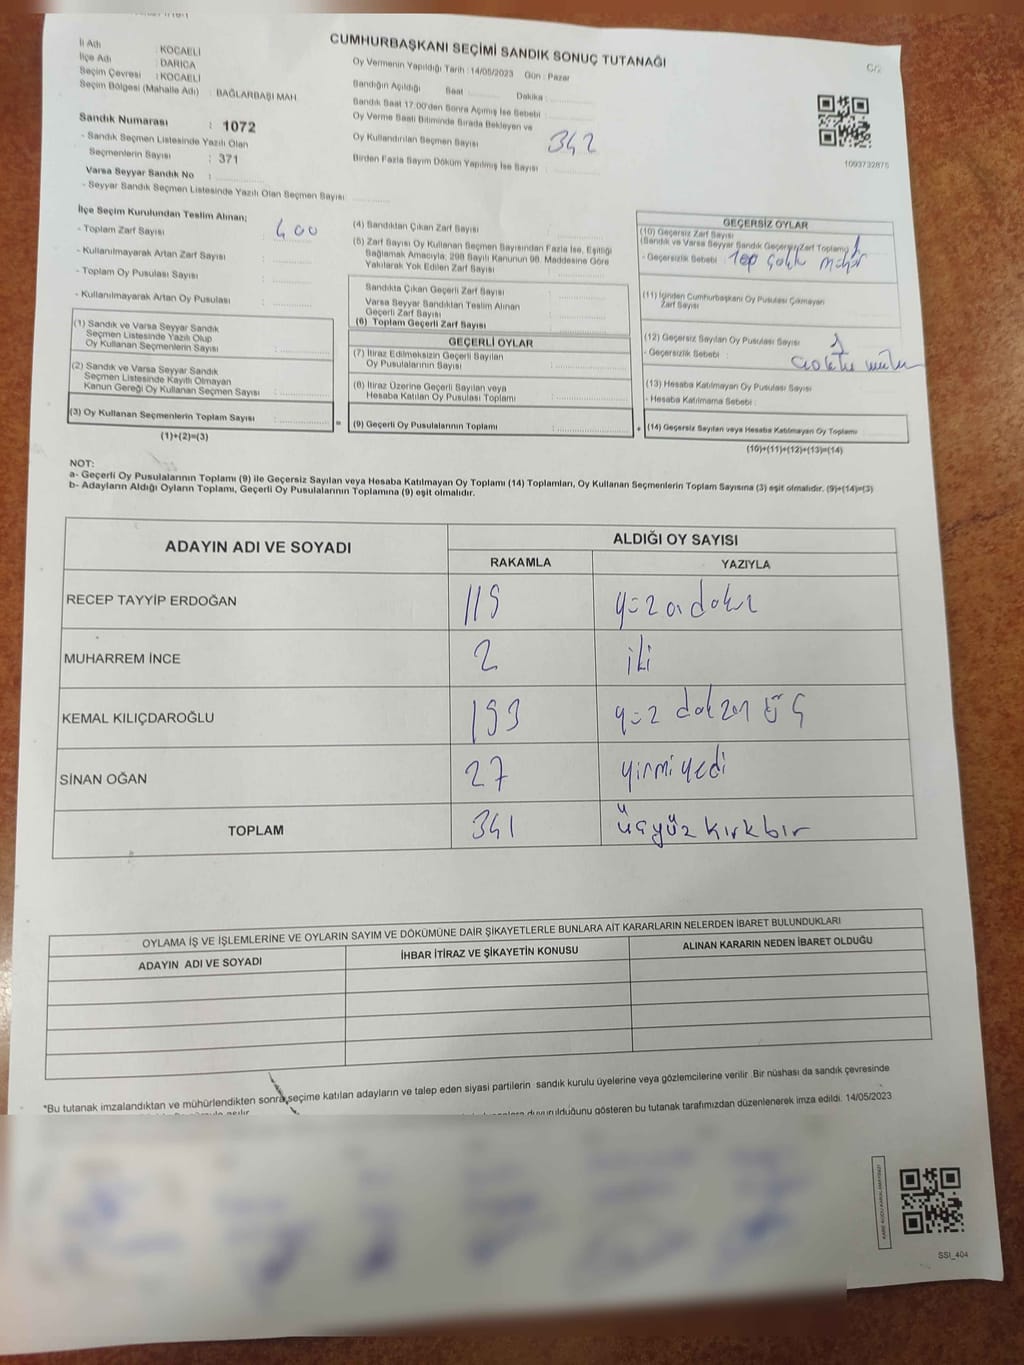 CUMHURBAŞKANI SEÇİMİ SANDIK SONUÇ TUTANAĞI
C/2
İl Adı : KOCAELİ
İlçe Adı : DARICA
Seçim Çevresi : KOCAELİ
Seçim Bölgesi (Mahalle Adı) : BAĞLARBAŞI MAH
Sandık Numarası : 1072
- Sandık Seçmen Listesinde Yazılı Olan
Seçmenlerin Sayısı : 371
Varsa Seyyar Sandık No :
- Seyyar Sandık Seçmen Listesinde Yazılı Olan Seçmen Sayısı :
Oy Vermenin Yapıldığı Tarih : 14/05/2023 Gün : Pazar
Sandığın Açıldığı Saat Dakika :
Sandık Saat 17:00'den Sonra Açılmış İse Sebebi :
Oy Verme Saati Bitiminde Sırada Bekleyen ve
Oy Kullandırılan Seçmen Sayısı 342
Birden Fazla Sayım Döküm Yapılmış İse Sayısı :
1093732875
İlçe Seçim Kurulundan Teslim Alınan;
- Toplam Zarf Sayısı : 400
- Kullanılmayarak Artan Zarf Sayısı :
- Toplam Oy Pusulası Sayısı :
- Kullanılmayarak Artan Oy Pusulası :
(1) Sandık ve Varsa Seyyar Sandık
Seçmen Listesinde Yazılı Olup
Oy Kullanan Seçmenlerin Sayısı :
(2) Sandık ve Varsa Seyyar Sandık
Seçmen Listesinde Kayıtlı Olmayan
Kanun Gereği Oy Kullanan Seçmen Sayısı :
(3) Oy Kullanan Seçmenlerin Toplam Sayısı : =
(1)+(2)=(3)
(4) Sandıktan Çıkan Zarf Sayısı :
(5) Zarf Sayısı Oy Kullanan Seçmen Sayısından Fazla İse, Eşitliği
Sağlamak Amacıyla; 298 Sayılı Kanunun 98. Maddesine Göre
Yakılarak Yok Edilen Zarf Sayısı :
Sandıkta Çıkan Geçerli Zarf Sayısı :
Varsa Seyyar Sandıktan Teslim Alınan
Geçerli Zarf Sayısı :
(6) Toplam Geçerli Zarf Sayısı :
GEÇERLİ OYLAR
(7) İtiraz Edilmeksizin Geçerli Sayılan
Oy Pusulalarının Sayısı :
(8) İtiraz Üzerine Geçerli Sayılan veya
Hesaba Katılan Oy Pusulası Toplamı :
(9) Geçerli Oy Pusulalarının Toplamı : +
GEÇERSİZ OYLAR
(10) Geçersiz Zarf Sayısı
(Sandık ve Varsa Seyyar Sandık Geçersiz Zarf Toplamı) 1
- Geçersizlik Sebebi :
(11) İçinden Cumhurbaşkanı Oy Pusulası Çıkmayan
Zarf Sayısı :
(12) Geçersiz Sayılan Oy Pusulası Sayısı : 1
- Geçersizlik Sebebi :
(13) Hesaba Katılmayan Oy Pusulası Sayısı
- Hesaba Katılmama Sebebi :
(14) Geçersiz Sayılan veya Hesaba Katılmayan Oy Toplamı :
(10)+(11)+(12)+(13)=(14)
NOT:
a- Geçerli Oy Pusulalarının Toplamı (9) ile Geçersiz Sayılan veya Hesaba Katılmayan Oy Toplamı (14) Toplamları, Oy Kullanan Seçmenlerin Toplam Sayısına (3) eşit olmalıdır. (9)+(14)=(3)
b- Adayların Aldığı Oyların Toplamı, Geçerli Oy Pusulalarının Toplamına (9) eşit olmalıdır.
ADAYIN ADI VE SOYADI ALDIĞI OY SAYISI
RAKAMLA YAZIYLA
RECEP TAYYİP ERDOĞAN 119 yüz on dokuz
MUHARREM İNCE 2 iki
KEMAL KILIÇDAROĞLU 193 yüz doksan üç
SİNAN OĞAN 27 yirmi yedi
TOPLAM 341 üçyüz kırkbir
OYLAMA İŞ VE İŞLEMLERİNE VE OYLARIN SAYIM VE DÖKÜMÜNE DAİR ŞİKAYETLERLE BUNLARA AİT KARARLARIN NELERDEN İBARET BULUNDUKLARI
ADAYIN ADI VE SOYADI İHBAR İTİRAZ VE ŞİKAYETİN KONUSU ALINAN KARARIN NEDEN İBARET OLDUĞU
*Bu tutanak imzalandıktan ve mühürlendikten sonra, seçime katılan adayların ve talep eden siyasi partilerin sandık kurulu üyelerine veya gözlemcilerine verilir. Bir nüshası da sandık çevresinde
duyurulduğunu gösteren bu tutanak tarafımızdan düzenlenerek imza edildi. 14/05/2023
SSI_404